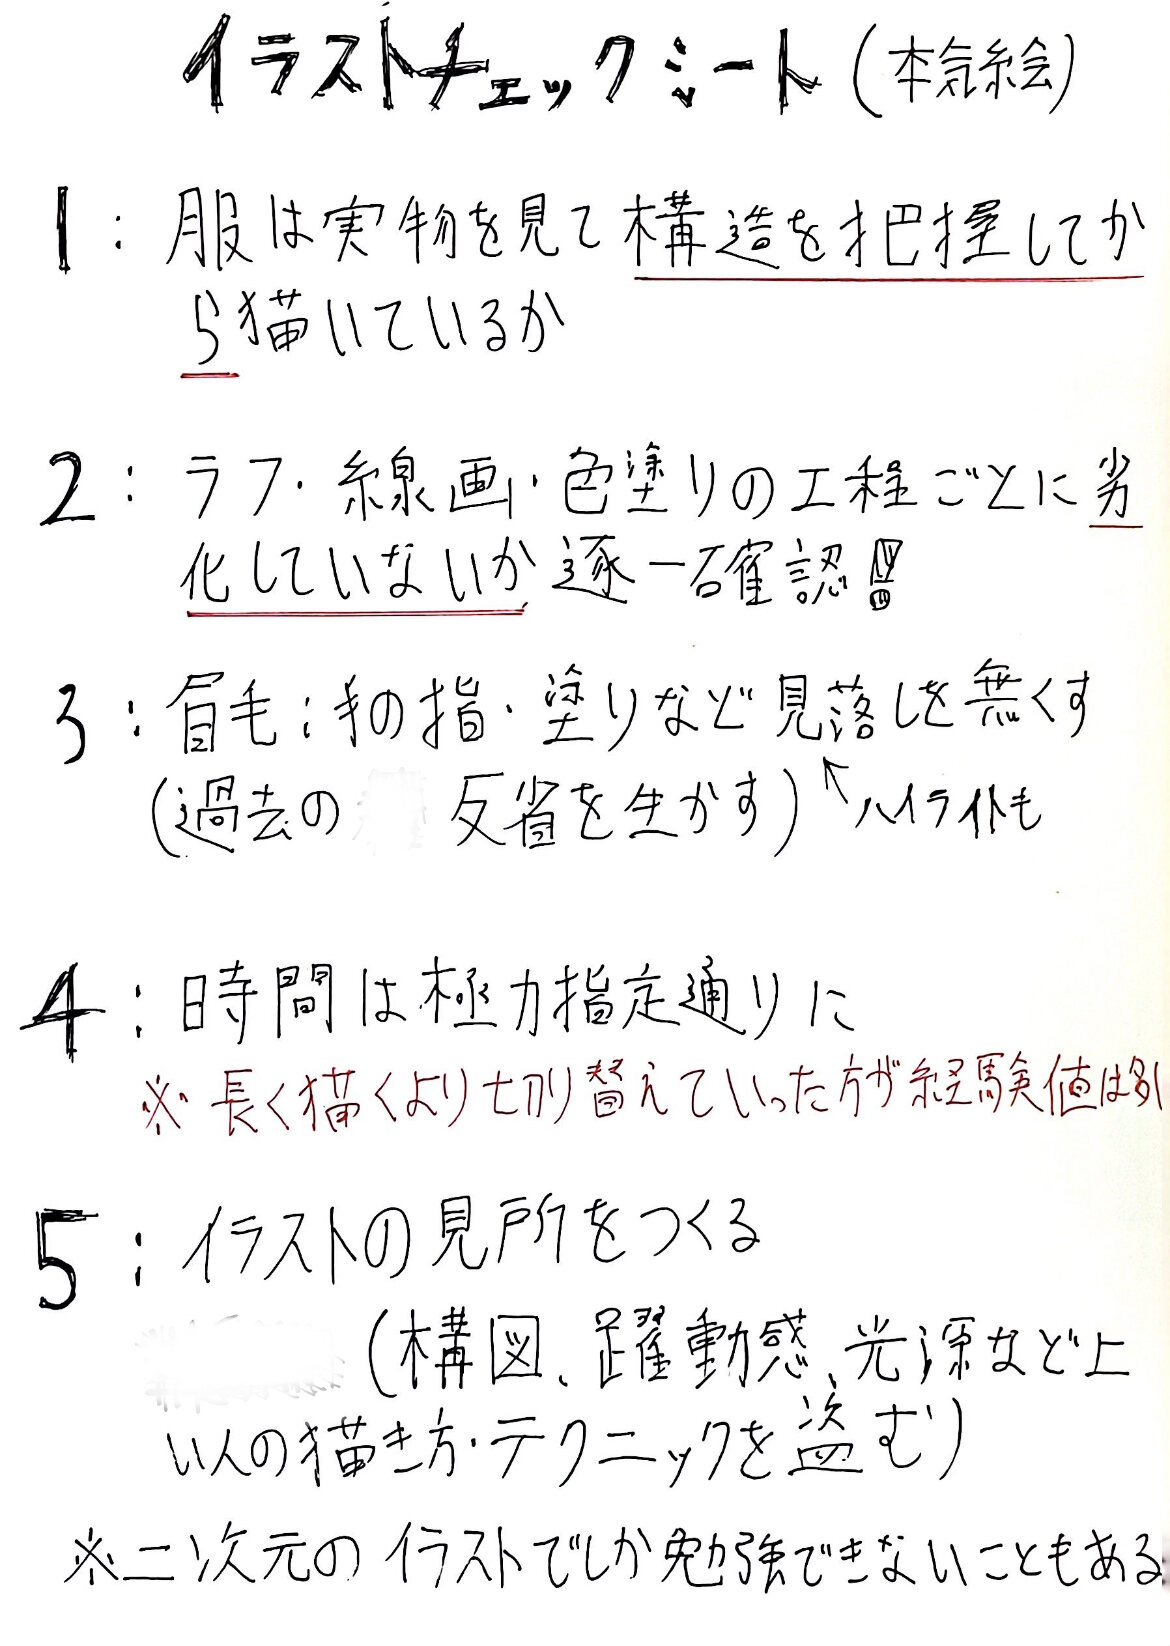 イラストチェックシート(本気絵)
1:服は実物を見て構造を把握してか
ら描いているか
2:ラフ・線画・色塗りの工程ごとに劣
化していないか逐一確認!!
3:眉毛;手の指・塗りなど見落しを無くす
(過去の 反省を生かす)↖ハイライトも
4:時間は極力指定通りに
※長く描くより切り替えていった方が経験値は多い
5:イラストの見所をつくる
(構図、躍動感、光源など上
いんの描き方・テクニックを盗む)
※二次元のイラストでしか勉強できないこともある